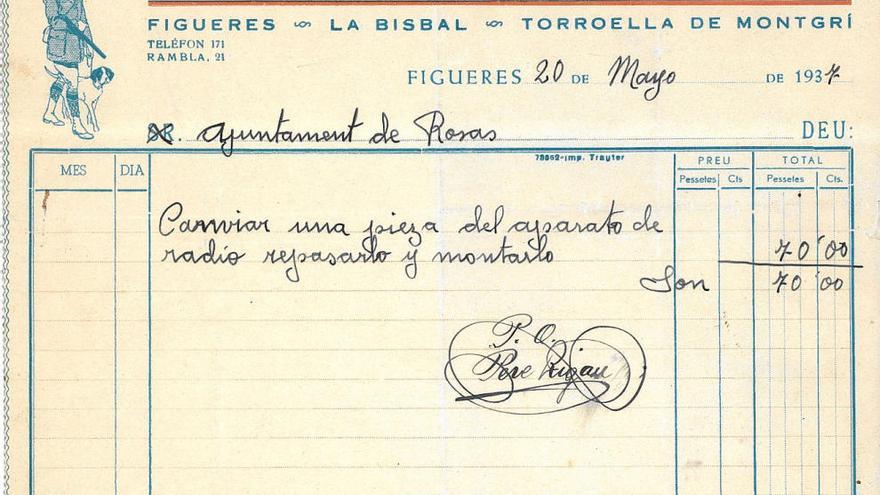 FIGUERES ∾ LA BISBAL ∾ TORROELLA DE MONTGRÍ
TELÈFON 171
RAMBLA, 21
FIGUERES 20 DE Mayo DE 1937
SR. Ajuntament de Rosas DEU:
73862-Imp. Trayter
MES DIA PREU TOTAL
Pessetes Cts. Pessetes Cts.
Canviar una pieza del aparato de
radio repasarlo y montarlo 70'00
Son 70'00
P. O.
Pere Rigau